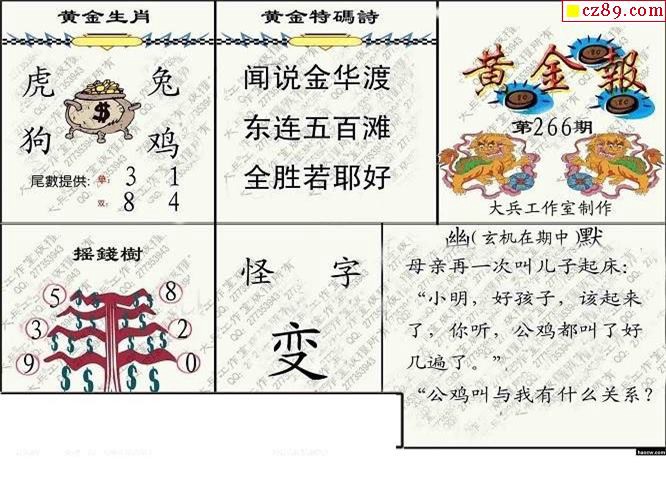 cz89.com
黄金生肖
虎 兔
狗 鸡
$
尾數提供: 单: 3 1
双: 8 4
黄金特碼詩
闻说金华渡
东连五百滩
全胜若耶好
黄金報
第266期
大兵工作室制作
摇錢樹
5 8
3 2
9 0
怪字
变
幽(玄机在期中)默
母亲再一次叫儿子起床:
“小明，好孩子，该起来
了，你听，公鸡都叫了好
几遍了。”
“公鸡叫与我有什么关系?